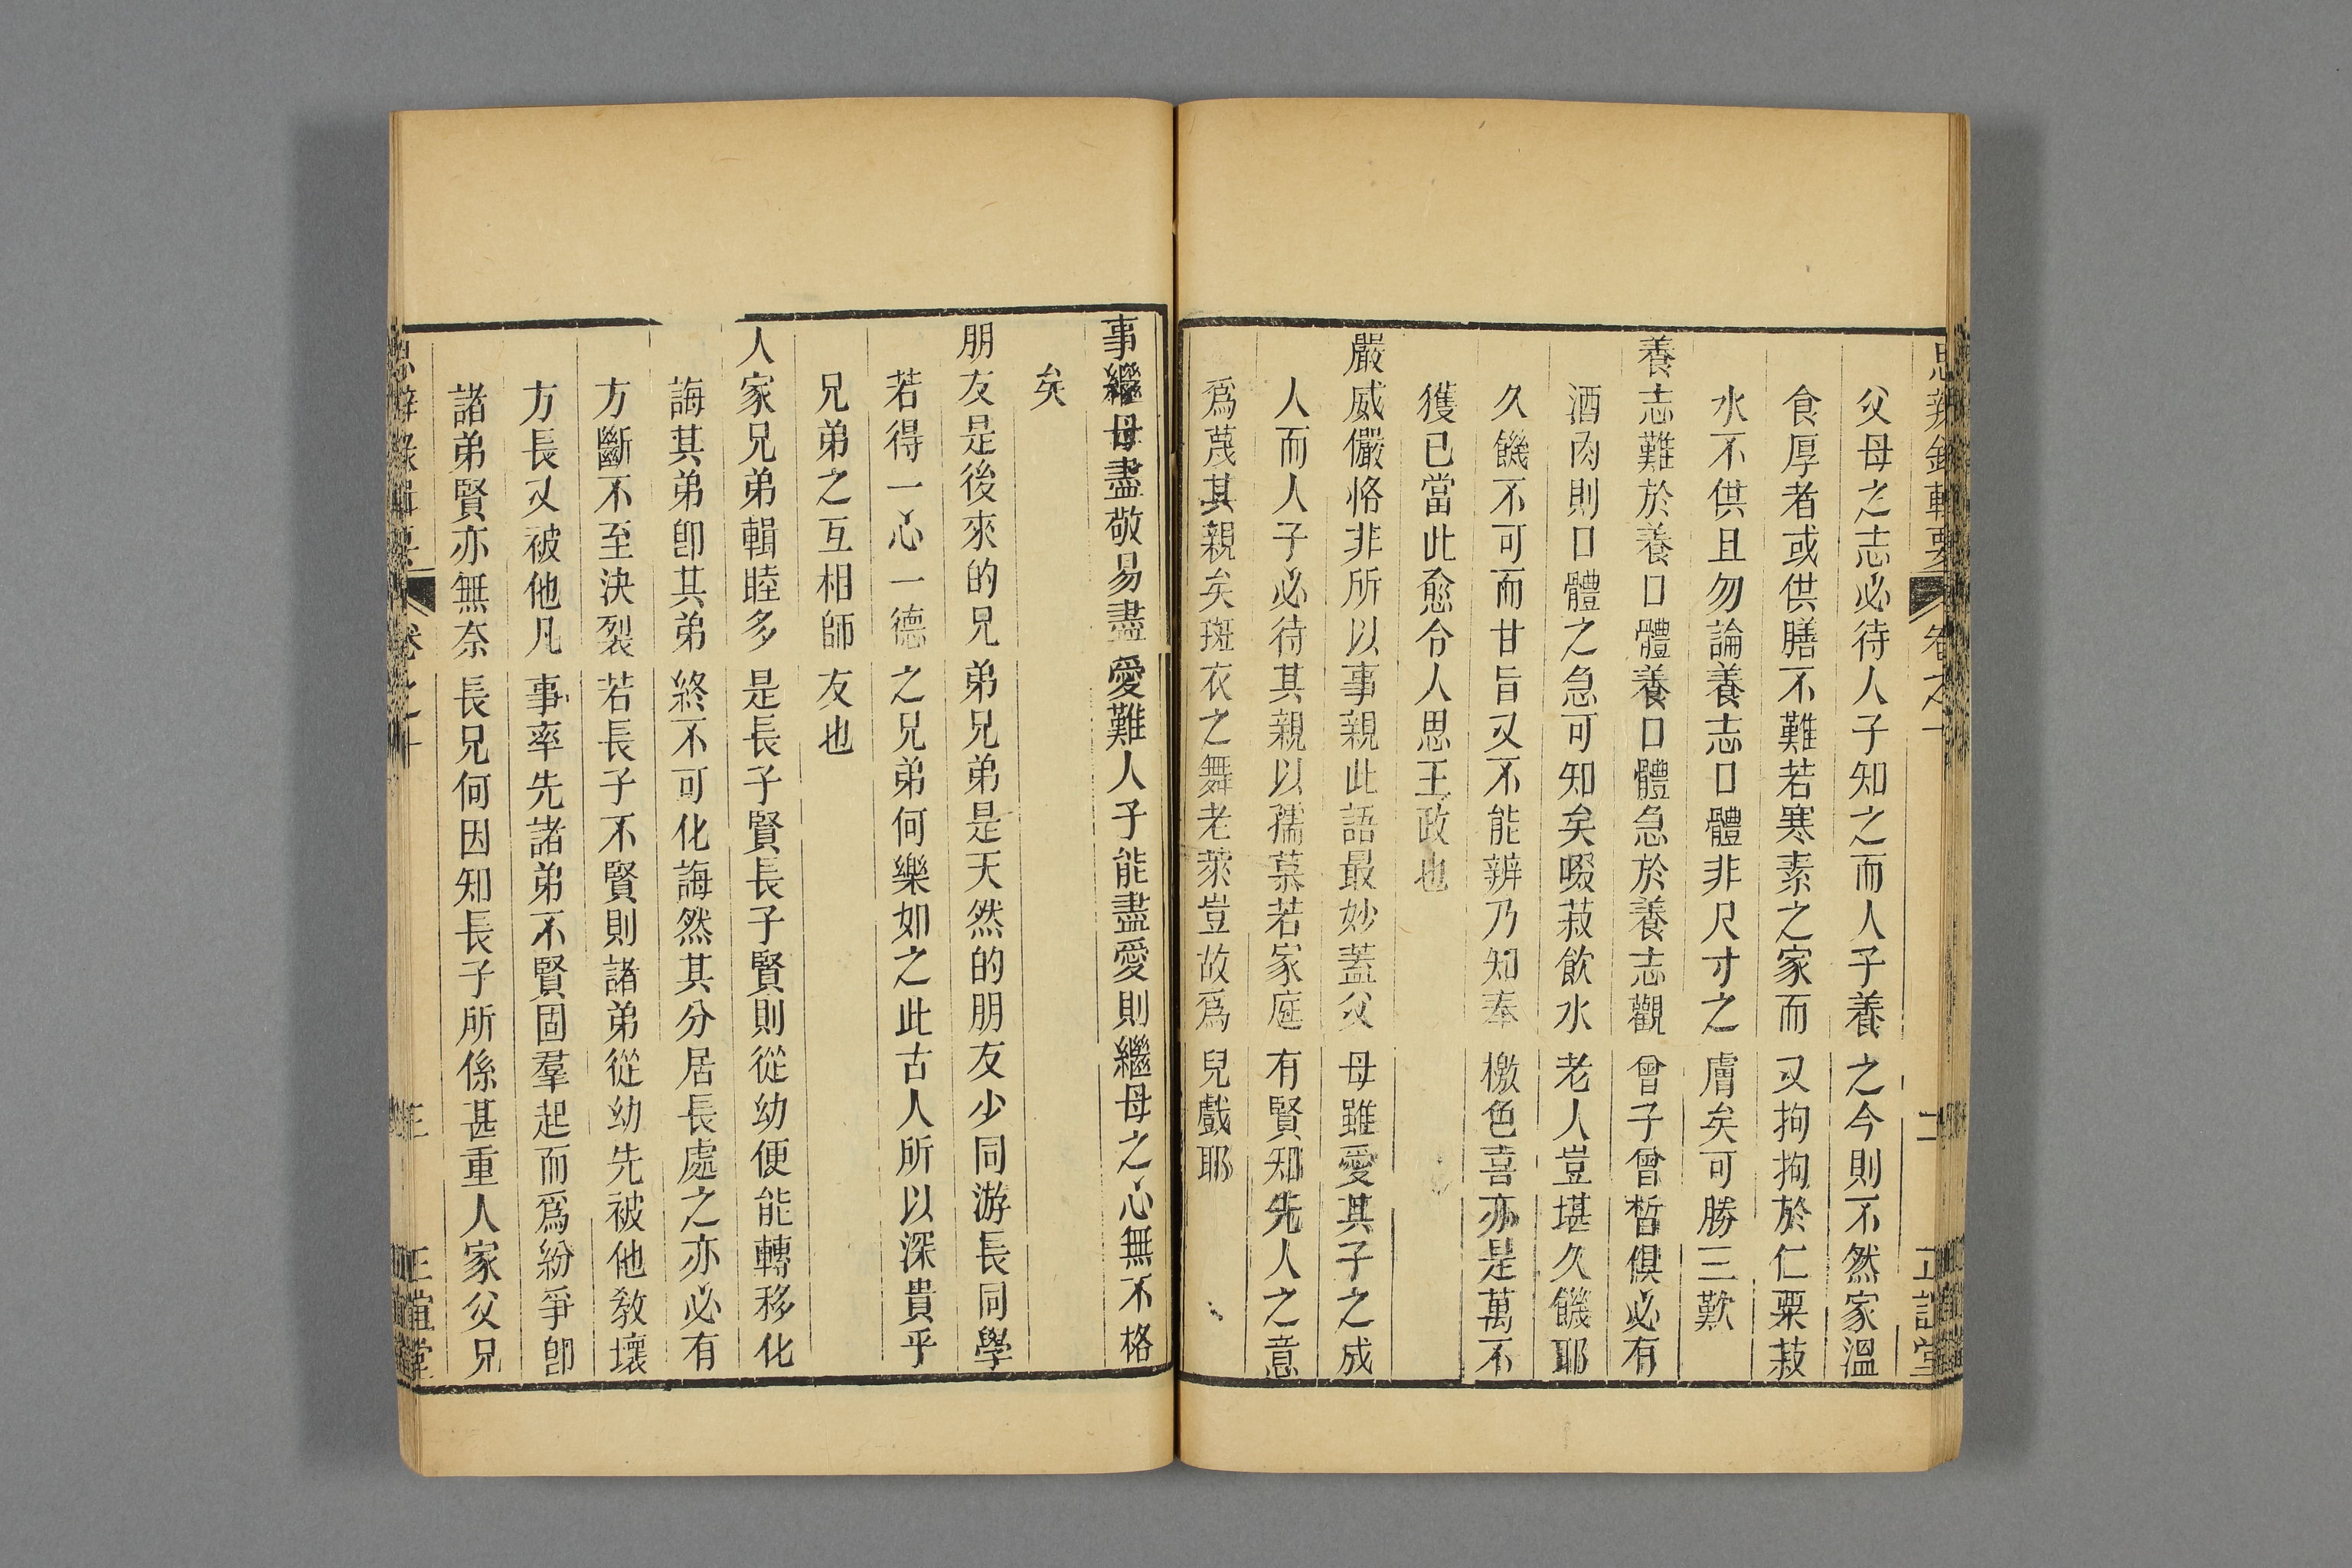 思辨錄輯要 卷之十 二 正誼堂
父母之志必待人子知之而人子養之今則不然家溫
食厚者或供膳不難若寒素之家而又拘拘於仁粟菽
水不供且勿論養志口體非尺寸之膚矣可勝三歎
養志難於養口體養口體急於養志觀曾子曾皙俱必有
酒肉則口體之急可知矣啜菽飲水老人豈堪久饑耶
久饑不可而甘旨又不能辨乃知奉檄色喜亦是萬不
獲已當此愈令人思王政也
嚴威儼恪非所以事親此語最妙蓋父母雖愛其子之成
人而人子必待其親以孺慕若家庭有賢知先人之意
爲蔑其親矣斑衣之舞老萊豈故爲兒戲耶
事繼母盡敬易盡愛難人子能盡愛則繼母之心無不格
矣
朋友是後來的兄弟兄弟是天然的朋友少同游長同學
若得一心一德之兄弟何樂如之此古人所以深貴乎
兄弟之互相師友也
人家兄弟輯睦多是長子賢長子賢則從幼便能轉移化
誨其弟卽其弟終不可化誨然其分居長處之亦必有
方斷不至決裂若長子不賢則諸弟從幼先被他教壞
方長又被他凡事率先諸弟不賢固羣起而爲紛爭卽
諸弟賢亦無奈長兄何因知長子所係甚重人家父兄
思辨錄輯要 卷之十 三 正誼堂